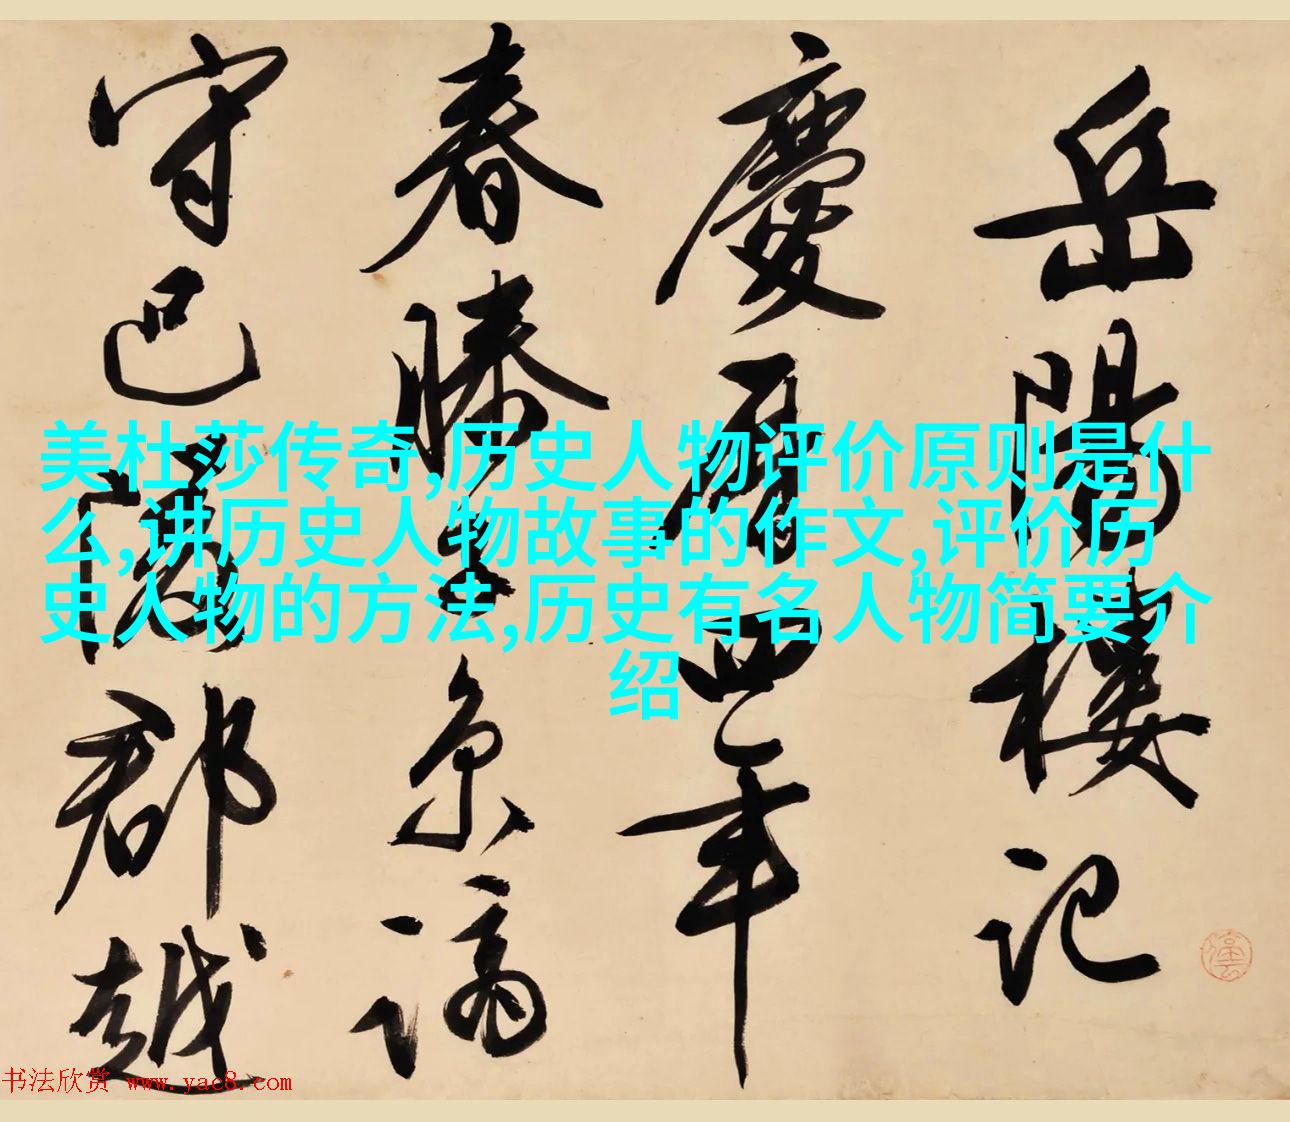 岳陽樓記
慶曆四年
春滕子京謫
守巴陵郡越
美杜莎传奇,历史人物评价原则是什
么,讲历史人物故事的作文,评价历
史人物的方法,历史有名人物简要介
绍
书法欣赏 www.yac8.com